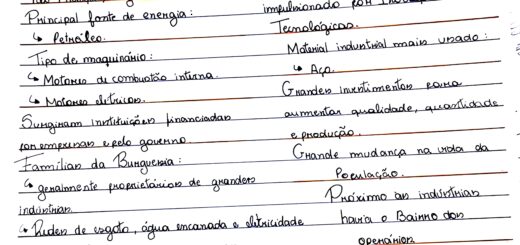 Principal fonte de energia:
↳ Petróleo.
Tipo de maquinário:
↳ Motores de combustão interna.
↳ Motores elétricos.
Surgiram instituições financiadas
por empresas e pelo governo.
Famílias da Burguesia:
↳ geralmente proprietários de grandes
indústrias.
↳ Redes de esgoto, água encanada e eletricidade
impulsionado por
Tecnológicas.
Material industrial mais usado:
↳ Aço.
Grandes investimentos para
aumentar qualidade, quantidade
e produção.
Grande mudança na vida da
População.
Próximo as indústrias
havia o Bairro dos
operários.